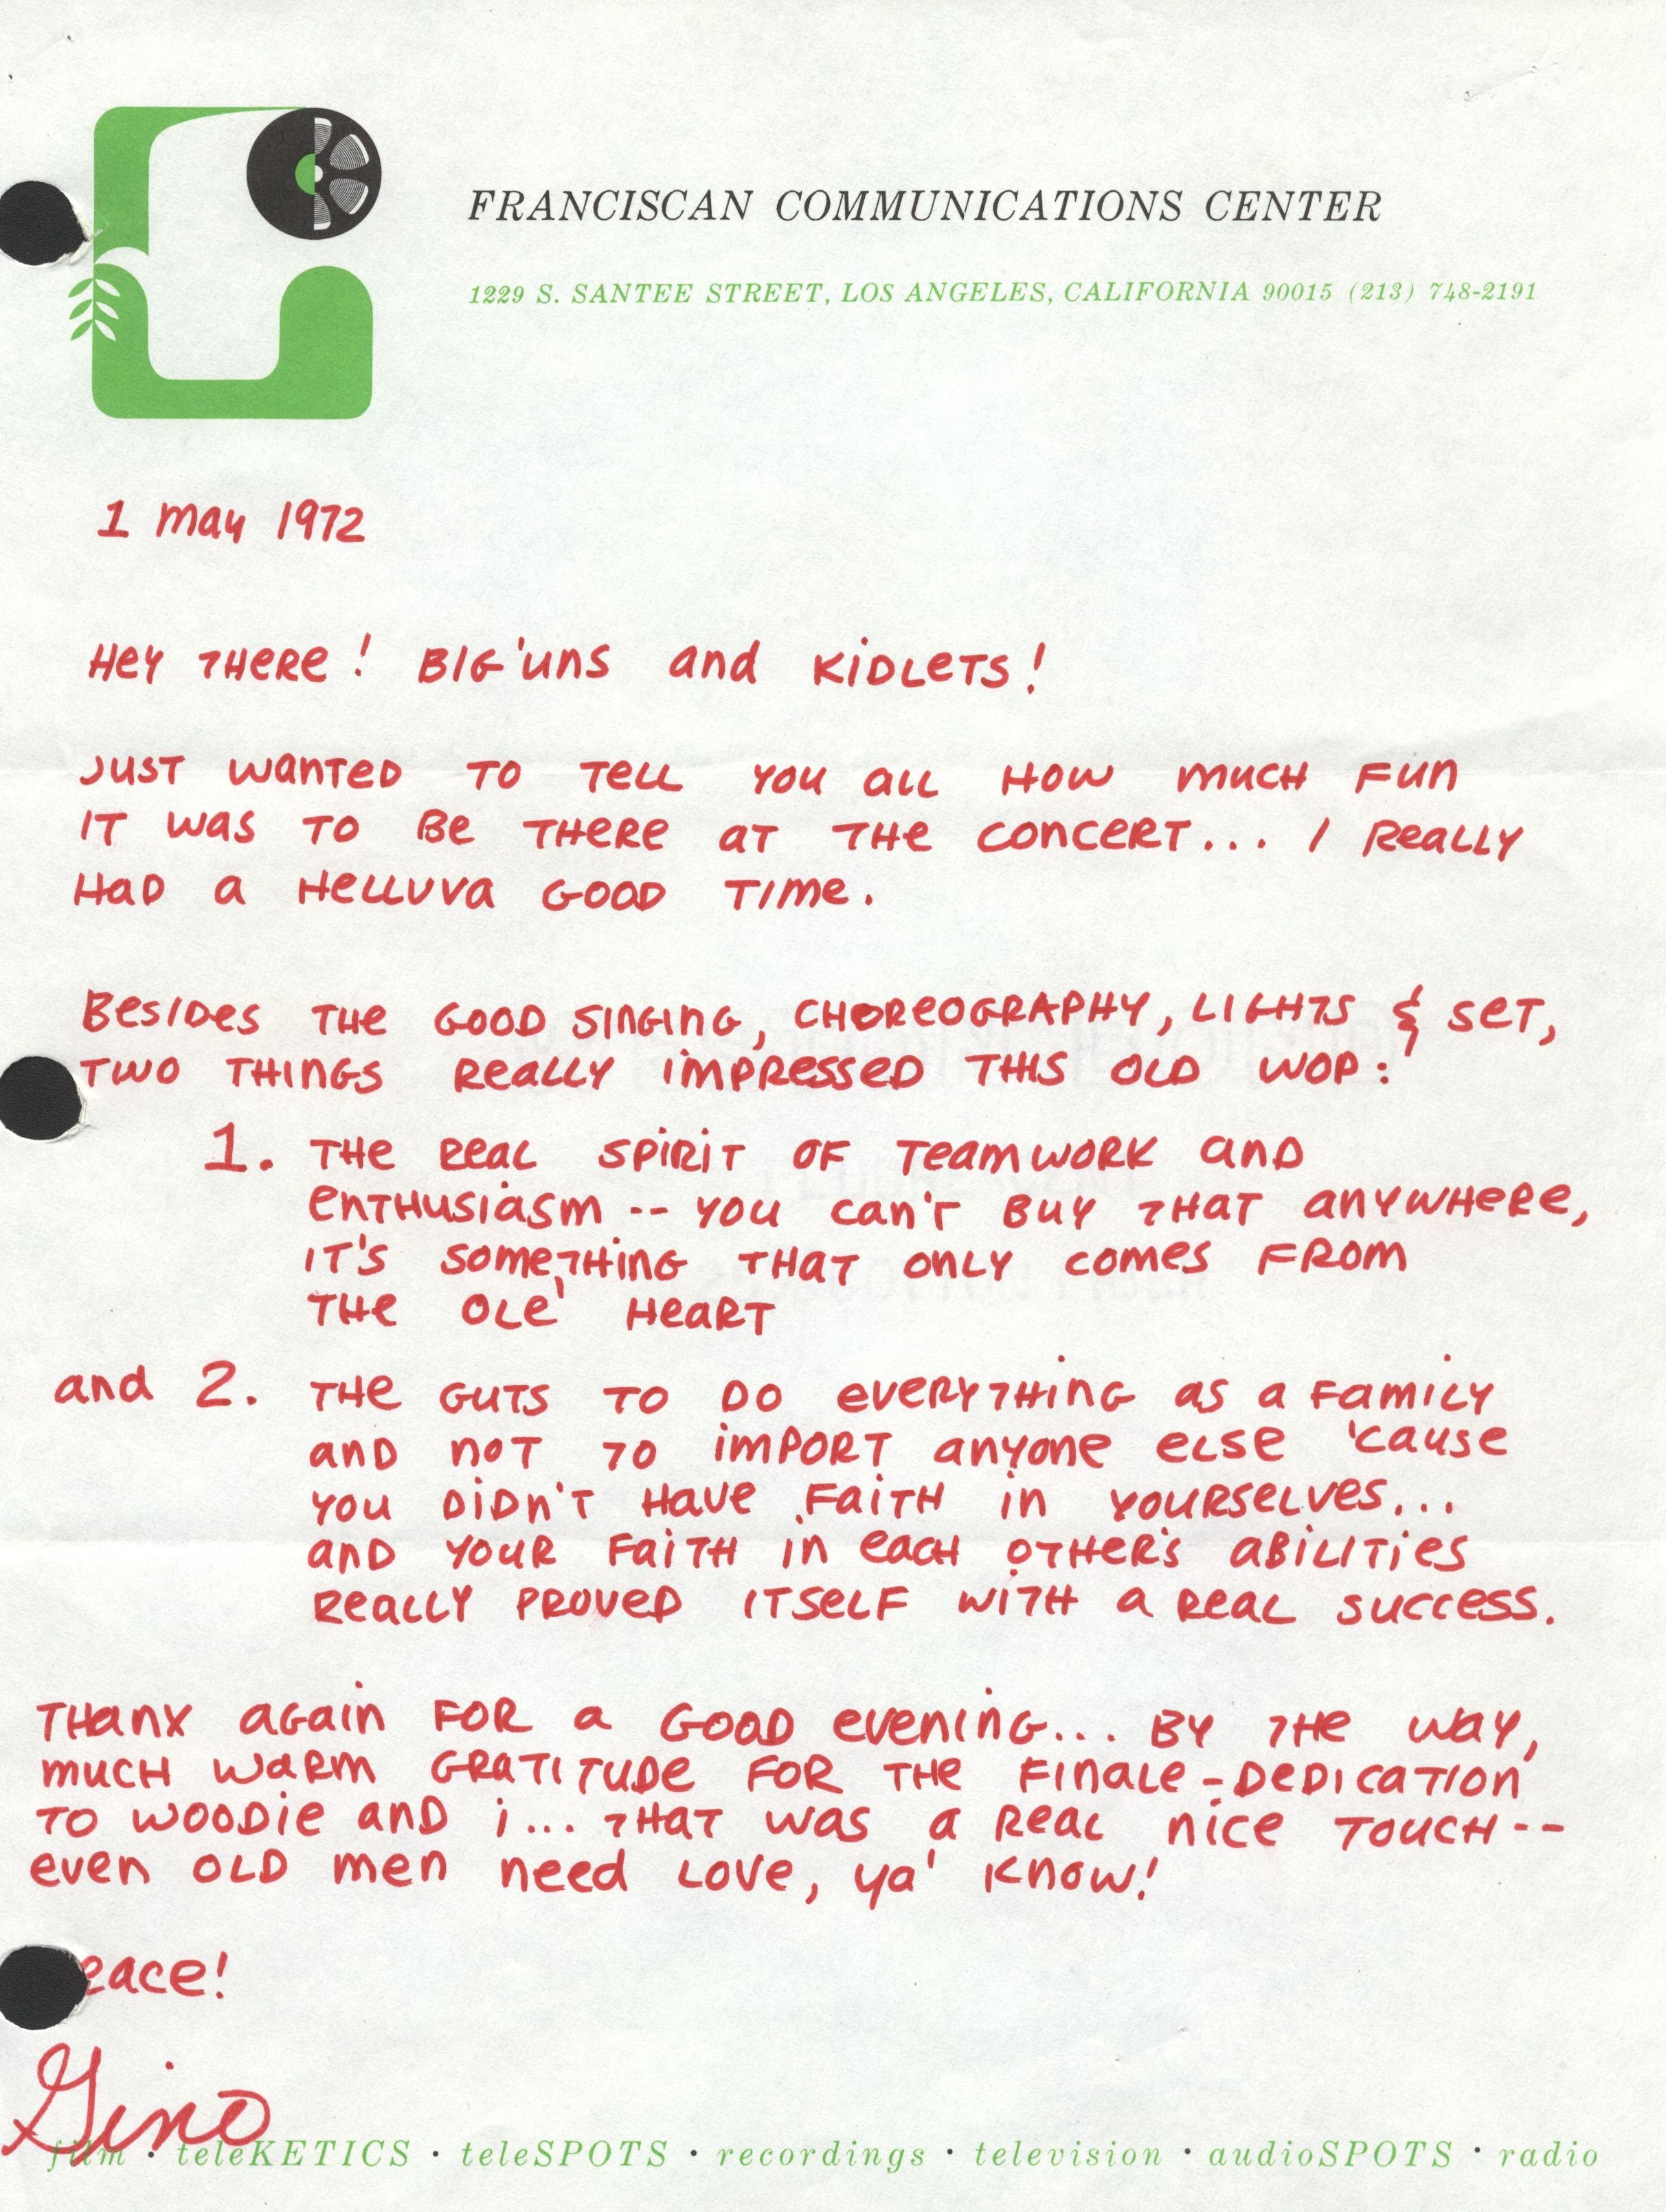 FRANCISCAN COMMUNICATIONS CENTER
1229 S. SANTEE STREET, LOS ANGELES, CALIFORNIA 90015 (213) 748-2191
1 may 1972
Hey THERE! BIG'uns and KiDLETS!
JUST WANTED TO TELL YOU ALL HOW MUCH FUN
IT WAS TO BE THERE AT THE CONCERT... I REALLY
HAD A HELLUVA GOOD TIME.
BESIDES THE GOOD SINGING, CHOREOGRAPHY, LIGHTS & SET,
TWO THINGS REALLY IMPRESSED THIS OLD WOP:
1. THE REAL SPIRIT OF TEAMWORK AND
ENTHUSIASM -- YOU CAN'T BUY THAT ANYWHERE,
IT'S SOMETHING THAT ONLY COMES FROM
THE OLE' HEART
and 2. THE GUTS TO DO EVERYTHING AS A FAMILY
AND NOT TO IMPORT ANYONE ELSE 'CAUSE
YOU DIDN'T HAVE FAITH IN YOURSELVES...
AND YOUR FAITH IN EACH OTHER'S ABILITIES
REALLY PROVED ITSELF WITH A REAL SUCCESS.
THANX AGAIN FOR A GOOD EVENING... BY THE WAY,
MUCH WARM GRATITUDE FOR THE FINALE-DEDICATION
TO WOODIE AND i... THAT WAS A REAL NICE TOUCH--
EVEN OLD MEN NEED LOVE, ya' KNOW!
eace!
Gino
film · teleKETICS · teleSPOTS · recordings · television · audioSPOTS · radio